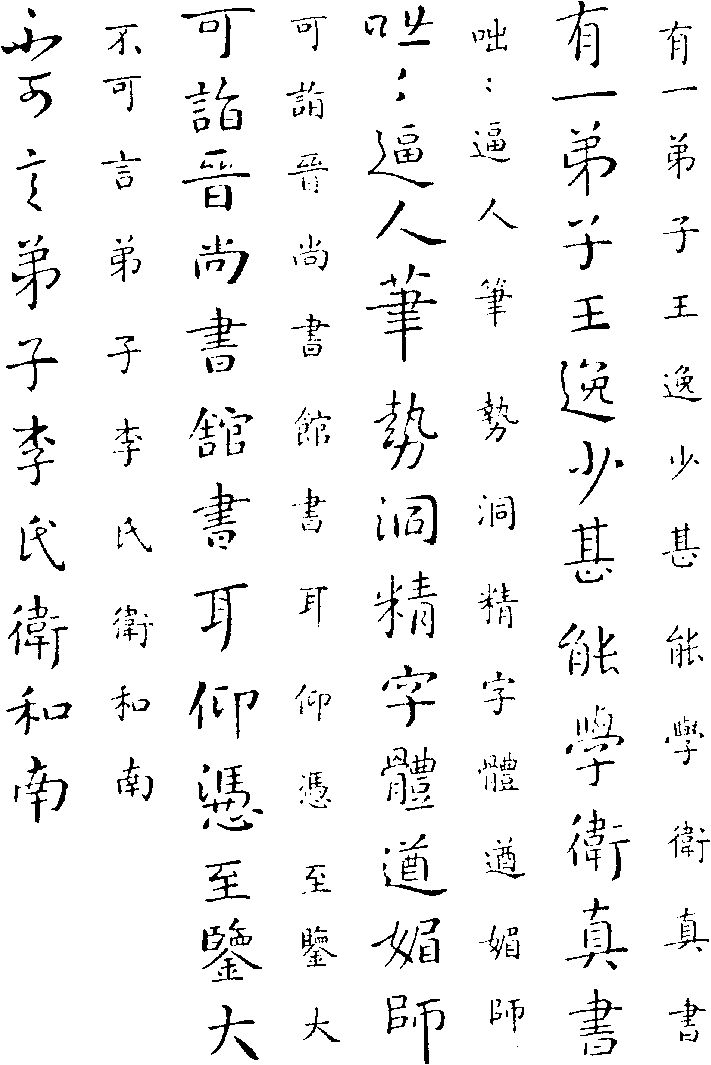 有一弟子王逸少甚能學衛真書
有一弟子王逸少甚能學衛真書
咄〻逼人筆勢洞精字體遒媚師
咄〻逼人筆勢洞精字體遒媚師
可詣晉尚書館書耳仰憑至鑒大
可詣晉尚書館書耳仰憑至鑒大
不可言弟子李氏衛和南
不可言弟子李氏衛和南